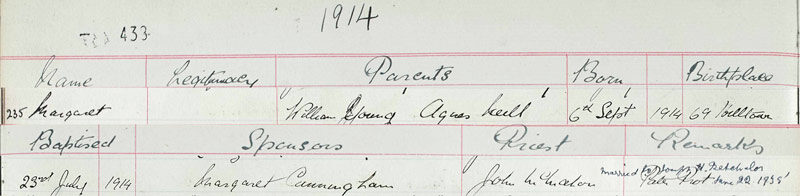 1914
433
Name Legitimacy Parents Born Birthplace
235 Margaret William Young Agnes Neill 6th Sept 1914 69 Milltown
Baptised Sponsors Priest Remarks
23rd July 1914 Margaret Cunningham John McMahon married to Joseph H.
June 22. 1935